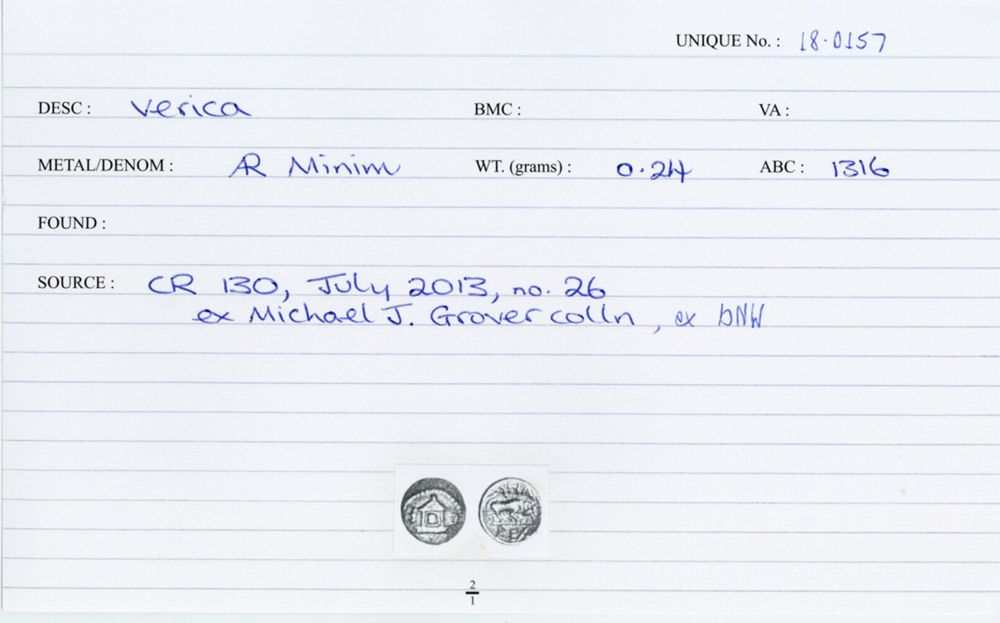 UNIQUE No. : 18·0157
DESC : Verica BMC : VA :
METAL/DENOM : AR Minim WT. (grams) : 0.24 ABC : 1316
FOUND :
SOURCE : CR 130, July 2013, no. 26
ex Michael J. Grover colln, ex DNW
REX
2
1